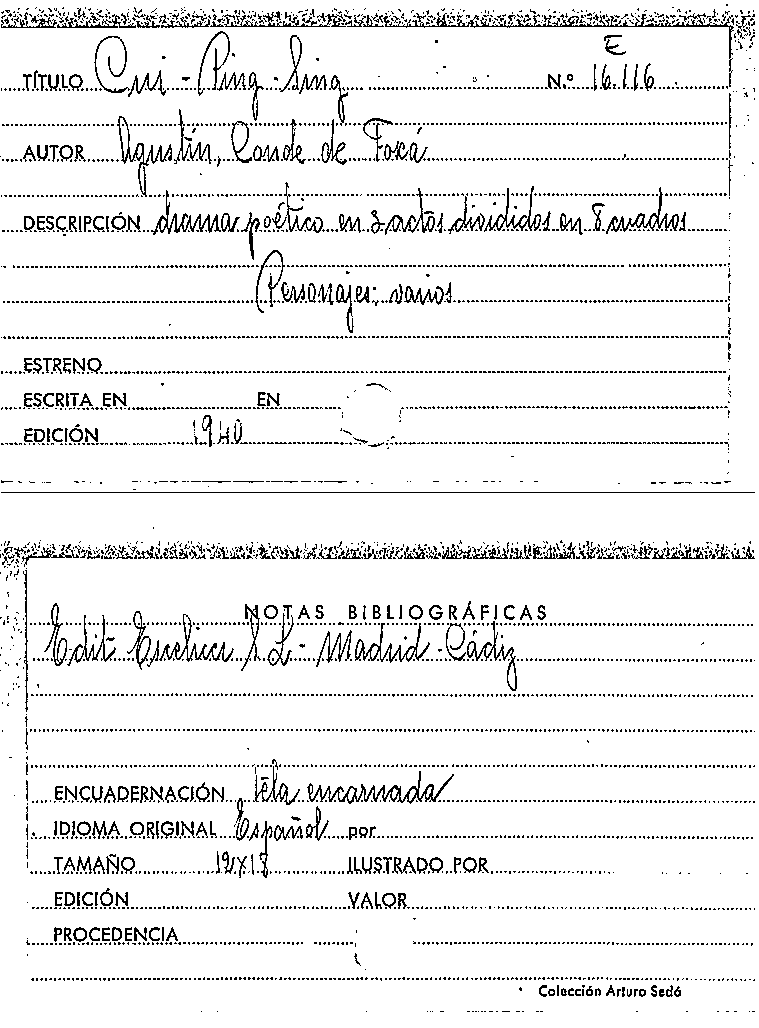 E
TÍTULO Cui-Ping-Sing N.º 16.116
AUTOR Agustín, Conde de Foxá
DESCRIPCIÓN drama poético en 3 actos divididos en 8 cuadros
Personajes: varios
ESTRENO
ESCRITA EN EN
EDICIÓN 1940
NOTAS BIBLIOGRÁFICAS
Edit Escelicer S L - Madrid - Cádiz
ENCUADERNACIÓN tela encarnada
IDIOMA ORIGINAL Español por
TAMAÑO ILUSTRADO POR
EDICIÓN VALOR
PROCEDENCIA
Colección Arturo Sedó